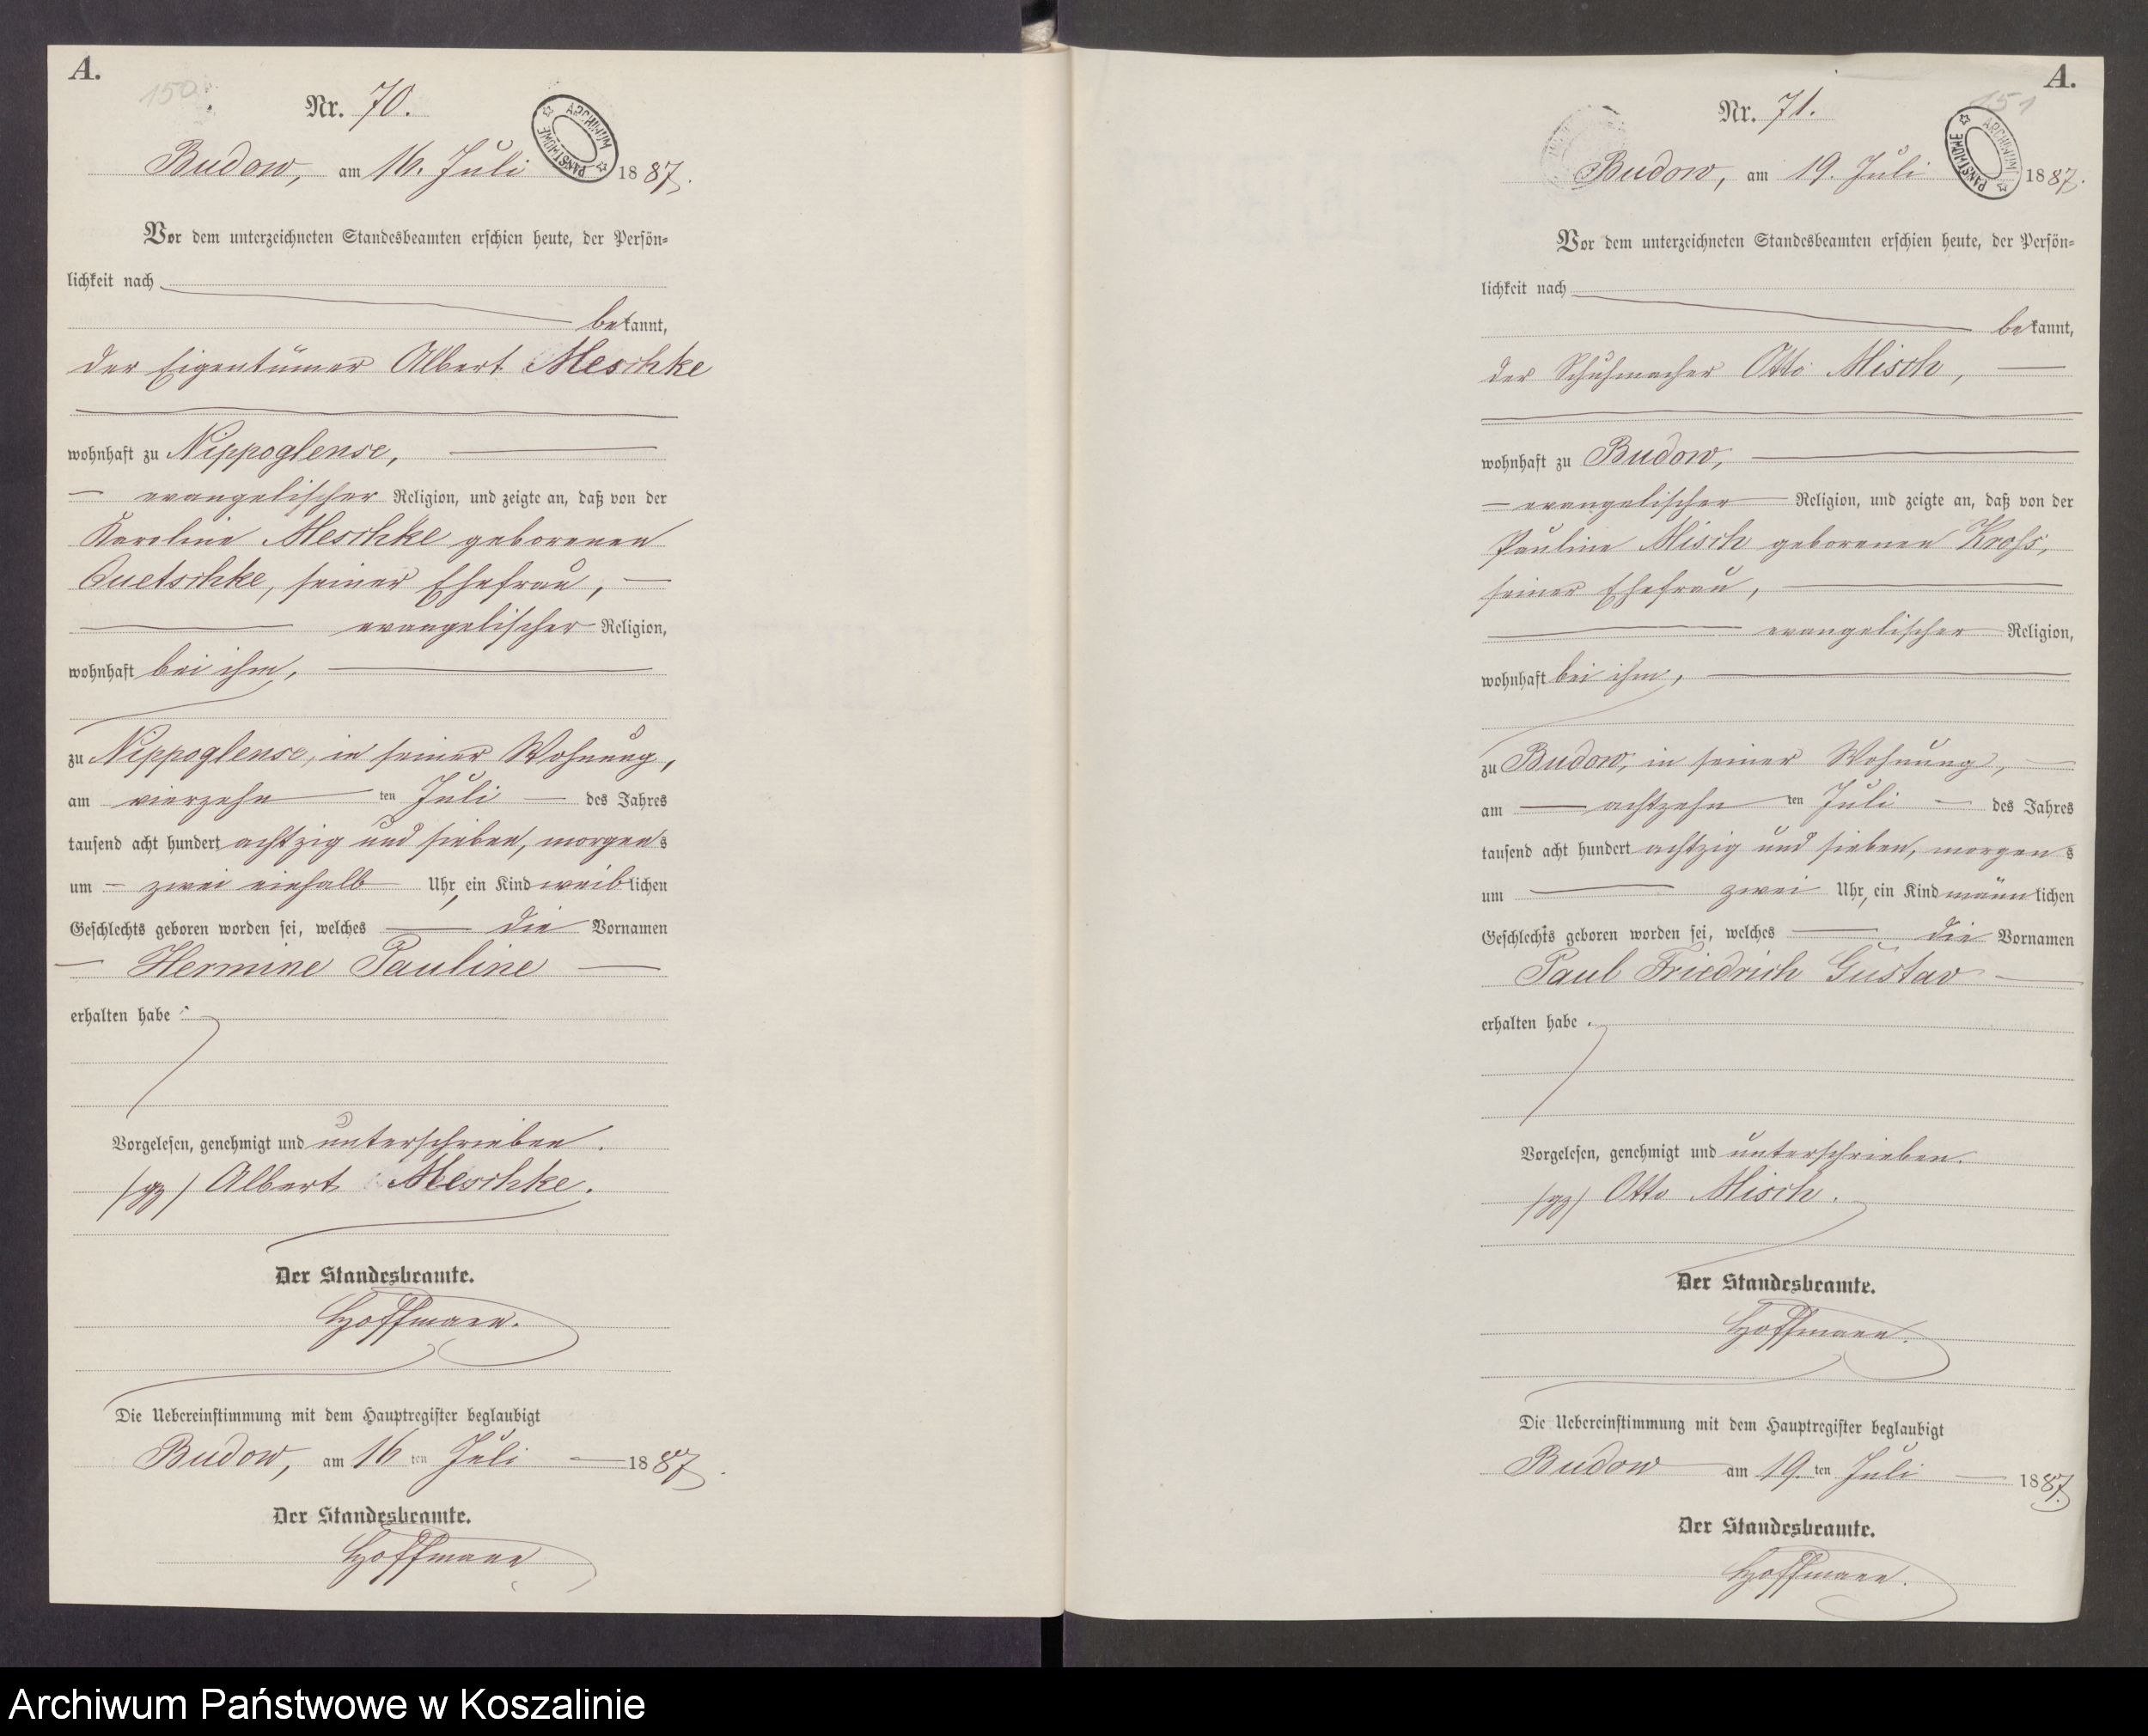 A.
150
Nr. 70.
ARCHIWUM PAŃSTWOWE
Budow, am 16. Juli 1887.
Vor dem unterzeichneten Standesbeamten erschien heute, der Persön=
lichkeit nach
bekannt,
der Eigentümer Albert Meschke
wohnhaft zu Nippoglense,
evangelischer Religion, und zeigte an, daß von der
Karoline Meschke geborenen
Quetschke, seiner Ehefrau,
evangelischer Religion,
wohnhaft bei ihm,
zu Nippoglense, in seiner Wohnung,
am vierzehn ten Juli des Jahres
tausend acht hundert achtzig und sieben, morgens
um zwei einhalb Uhr, ein Kind weiblichen
Geschlechts geboren worden sei, welches die Vornamen
Hermine Pauline
erhalten habe.
Vorgelesen, genehmigt und unterschrieben.
/gz/ Albert Meschke.
Der Standesbeamte.
Hoffmann.
Die Uebereinstimmung mit dem Hauptregister beglaubigt
Budow, am 16 ten Juli 1887.
Der Standesbeamte.
Hoffmann
A.
151
Nr. 71.
ARCHIWUM PAŃSTWOWE
Budow, am 19. Juli 1887.
Vor dem unterzeichneten Standesbeamten erschien heute, der Persön=
lichkeit nach
bekannt,
der Schuhmacher Otto Misch,
wohnhaft zu Budow,
evangelischer Religion, und zeigte an, daß von der
Pauline Misch geborenen Kroß,
seiner Ehefrau,
evangelischer Religion,
wohnhaft bei ihm,
zu Budow, in seiner Wohnung,
am achtzehn ten Juli des Jahres
tausend acht hundert achtzig und sieben, morgens
um zwei Uhr, ein Kind männlichen
Geschlechts geboren worden sei, welches die Vornamen
Paul Friedrich Gustav
erhalten habe.
Vorgelesen, genehmigt und unterschrieben.
/gz/ Otto Misch.
Der Standesbeamte.
Hoffmann.
Die Uebereinstimmung mit dem Hauptregister beglaubigt
Budow am 19. ten Juli 1887.
Der Standesbeamte.
Hoffmann.
Archiwum Państwowe w Koszalinie